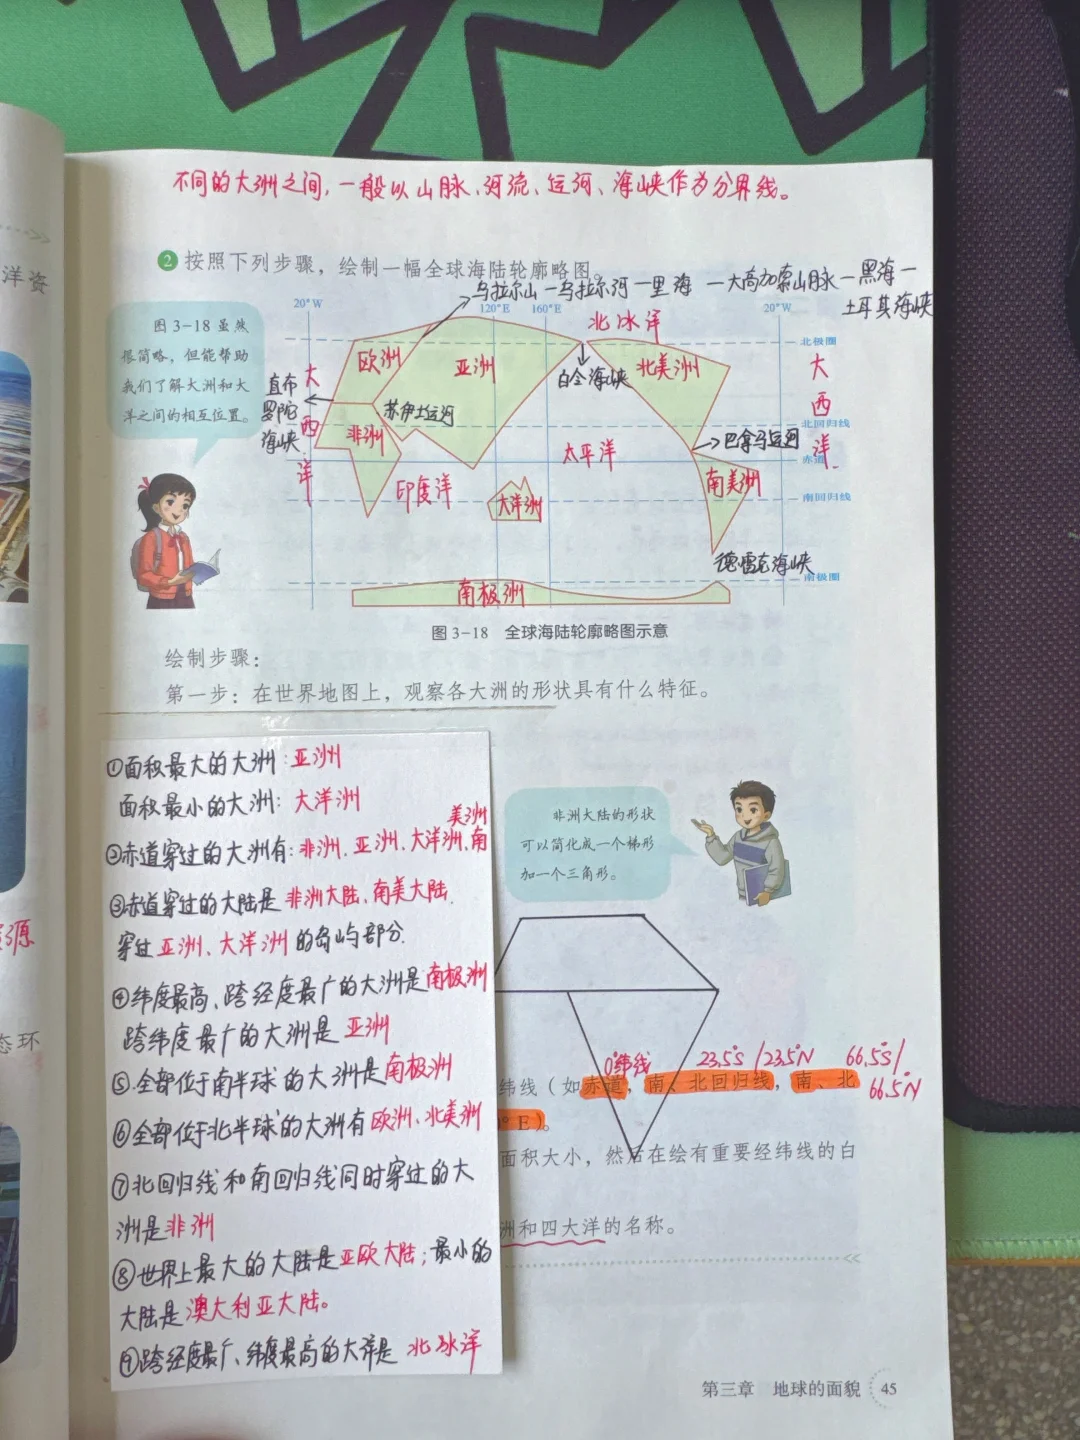 不同的大洲之间，一般以山脉、河流、运河、海峡作为分界线。
洋资
2 按照下列步骤，绘制一幅全球海陆轮廓略图。
乌拉尔山—乌拉尔河—里海—大高加索山脉—黑海—
土耳其海峡
图3-18虽然
很简略，但能帮助
我们了解大洲和大
洋之间的相互位置。
20°W
120°E
160°E
20°W
北冰洋
北极圈
欧洲
亚洲
白令海峡
北美洲
大
西
洋
大
西
洋
直布
罗陀
海峡
苏伊士运河
北回归线
非洲
太平洋
巴拿马运河
赤道
印度洋
大洋洲
南美洲
南回归线
德雷克海峡
南极圈
南极洲
图3-18 全球海陆轮廓略图示意
绘制步骤：
第一步：在世界地图上，观察各大洲的形状具有什么特征。
①面积最大的大洲：亚洲
面积最小的大洲：大洋洲
美洲
②赤道穿过的大洲有：非洲、亚洲、大洋洲、南
③赤道穿过的大陆是非洲大陆、南美大陆.
穿过亚洲、大洋洲的岛屿部分.
④纬度最高、跨经度最广的大洲是南极洲
跨纬度最广的大洲是亚洲
⑤全部位于南半球的大洲是南极洲
⑥全部位于北半球的大洲有欧洲、北美洲
⑦北回归线和南回归线同时穿过的大
洲是非洲
⑧世界上最大的大陆是亚欧大陆；最小的
大陆是澳大利亚大陆。
⑨跨经度最广、纬度最高的大洋是 北冰洋
非洲大陆的形状
可以简化成一个梯形
加一个三角形。
0°纬线
23.5°S/23.5°N
66.5°S/
66.5°N
纬线（如赤道，南、北回归线，南、北
° E）。
面积大小，然后在绘有重要经纬线的白
洲和四大洋的名称。
源
态环
第三章 地球的面貌 45